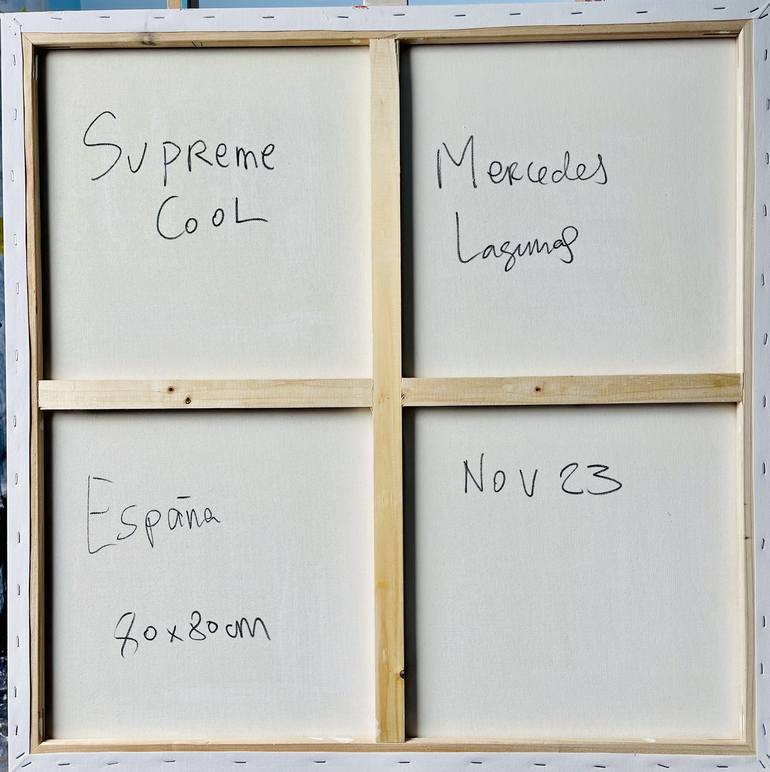 Supreme
Cool
Mercedes
Lagunas
España
80x80cm
Nov 23